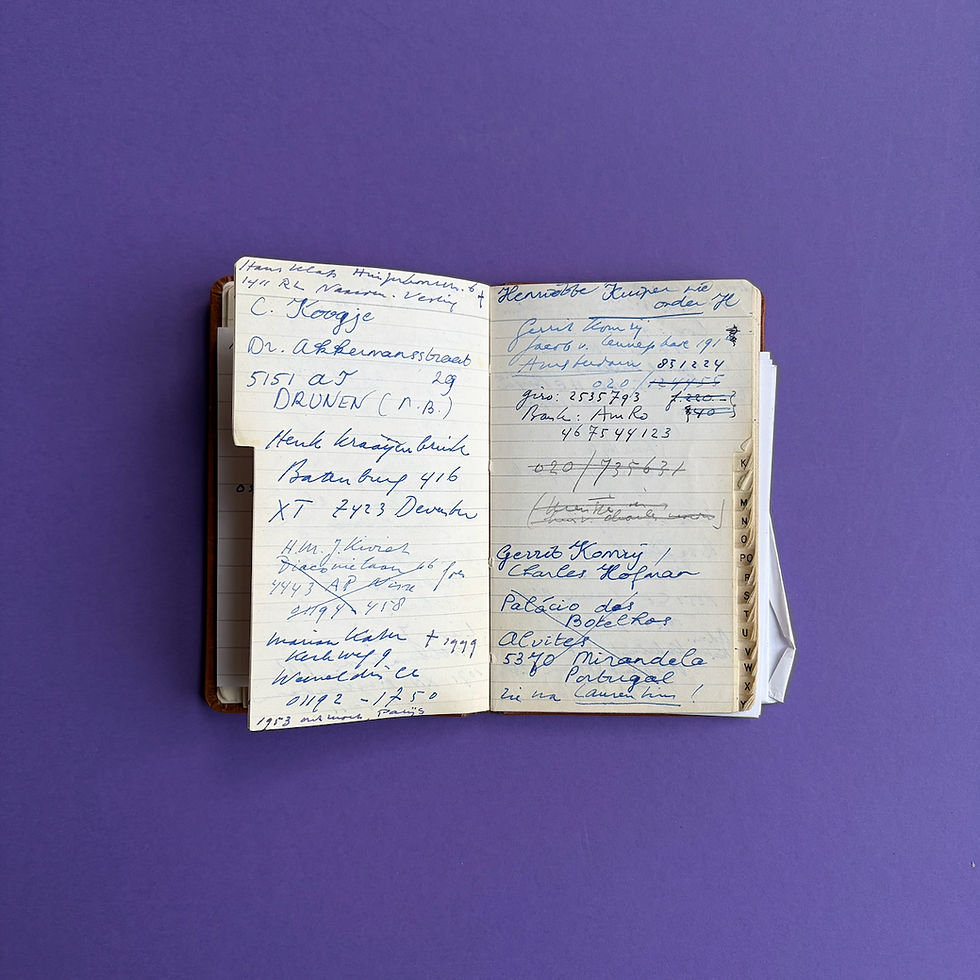 Hans Klap
1411 RL Naarden-Vesting †
C. Koogje
Dr. Akkermansstraat
5151 AJ 29
DRUNEN (N.B.)
Henk Kraaijenbrink
Batenburg 416
XT 7423 Deventer
H.M.J. Kivieh
Diaconielaan 66 Goes
4443 AP Nisse
01194-418
Marian Kater † 1999
Kerkweg 9
Wemeldinge
01192-1750
1953 Parijs
03
Henriëtte Kuiper zie
onder H
Gerrit Komrij
Jacob v. Lennepkade 191
Amsterdam 851224
020/124456
giro: 2535793
Bank: AmRo
467544123
020/735631
Gerrit Komrij /
Charles Hofman
Palácio dos
Botelhos
Alvites
5370 Mirandela
Portugal
zie
K
M
N
O
PQ
R
S
T
U
V
W
X
Y